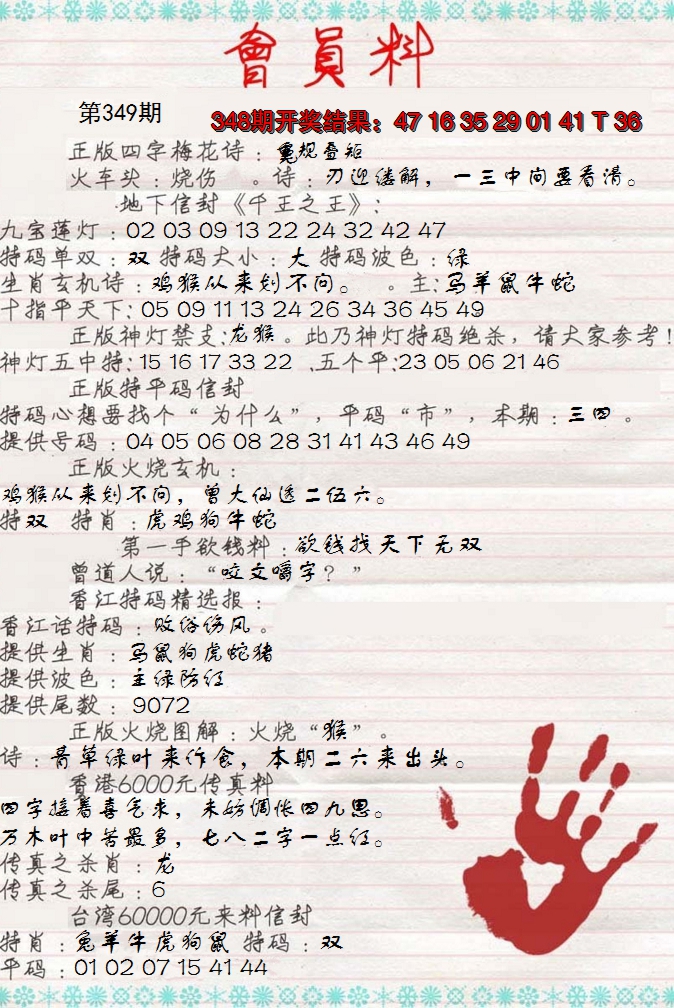 會員料
第349期
348期开奖结果：47 16 35 29 01 41 T 36
正版四字梅花诗：重规叠矩
火车头：烧伤 。诗：刃迎缕解，一三中间要看清。
地下信封《千王之王》：
九宝莲灯：02 03 09 13 22 24 32 42 47
特码单双：双 特码大小：大 特码波色：绿
生肖玄机诗：鸡猴从来划不问。 。主:马羊鼠牛蛇
十指平天下: 05 09 11 13 24 26 34 36 45 49
正版神灯禁支:龙猴。此乃神灯特码绝杀，请大家参考!
神灯五中特: 15 16 17 33 22 .五个平:23 05 06 21 46
正版特平码信封
特码心想要找个“为什么”，平码“市”，本期：三四。
提供号码：04 05 06 08 28 31 41 43 46 49
正版火烧玄机：
鸡猴从来划不问，曾大仙透二伍六。
特双 特肖：虎鸡狗牛蛇
第一手欲钱料：欲钱找天下无双
曾道人说：“咬文嚼字？”
香江特码精选报：
香江话特码：败俗伤风。
提供生肖：马鼠狗虎蛇猪
提供波色：主绿防红
提供尾数：9072
正版火烧图解：火烧“猴”。
诗：青草绿叶来作食，本期二六来出头。
香港6000元传真料
四字接着喜气来，未妨惆怅四九思。
万木叶中苦最多，七八二字一点红。
传真之杀肖：龙
传真之杀尾：6
台湾60000元来料信封
特肖：兔羊牛虎狗鼠 特码：双
平码：01 02 07 15 41 44